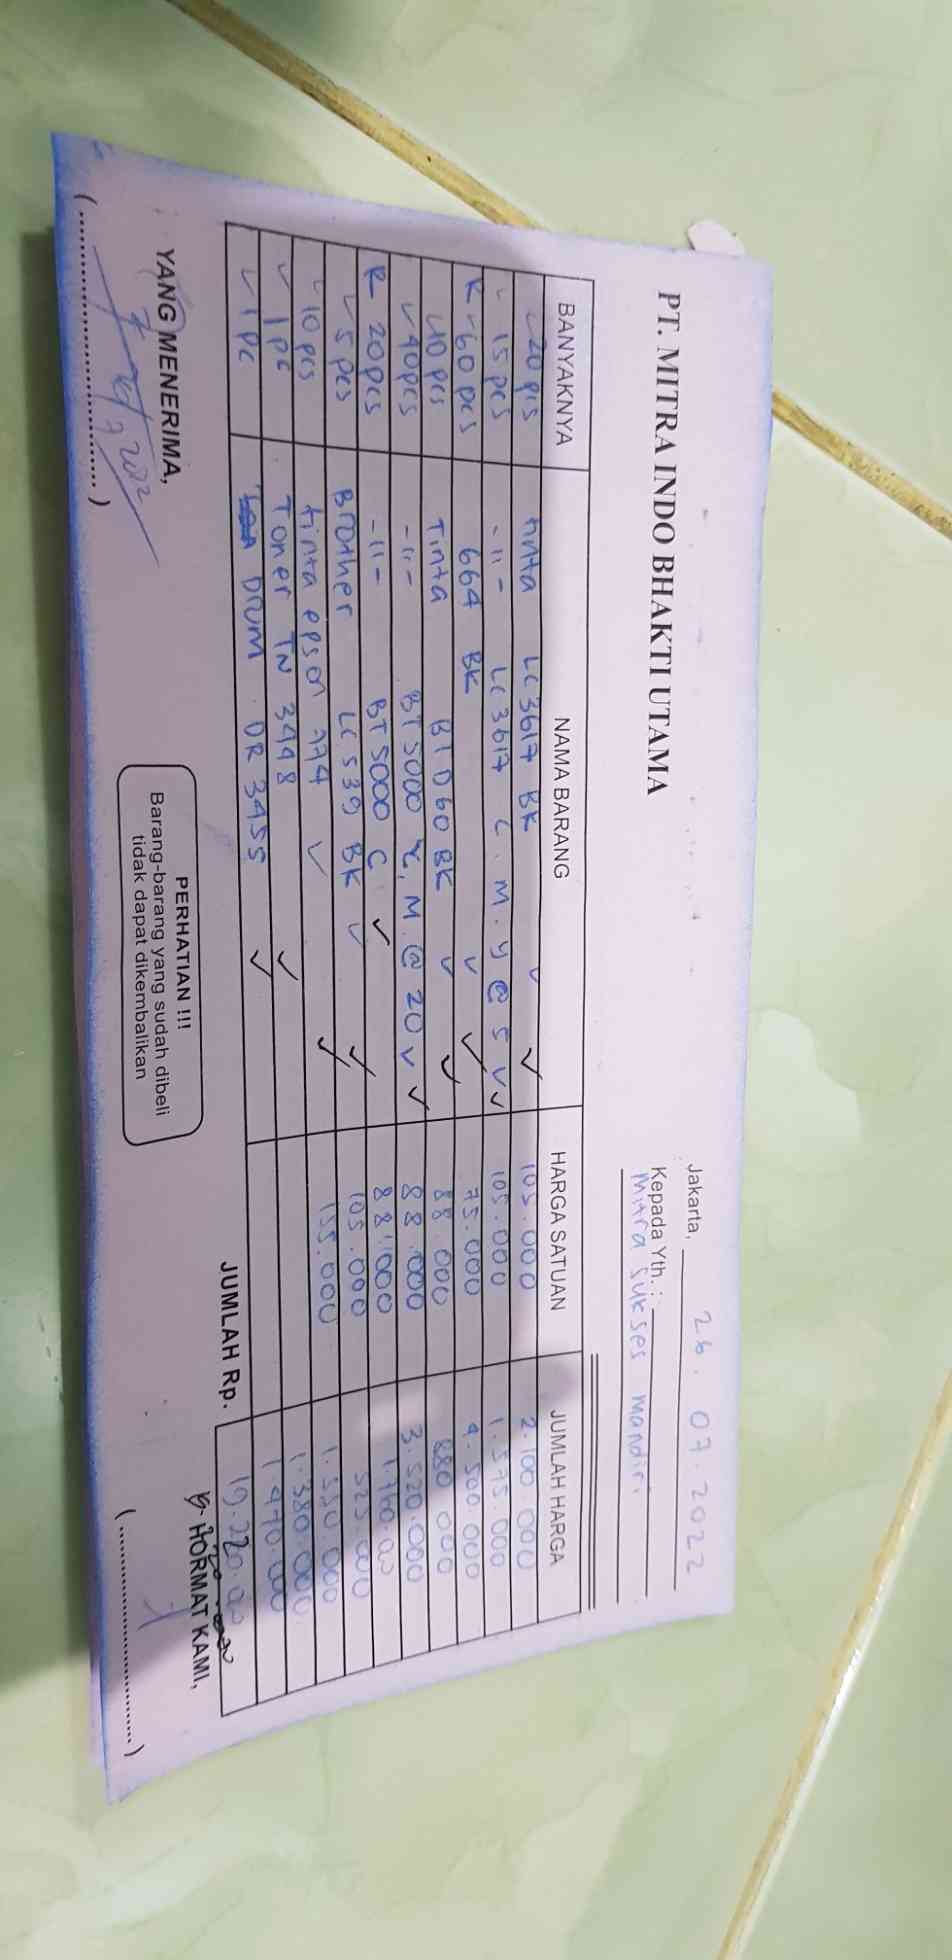 PT. MITRA INDO BHAKTI UTAMA
Jakarta, 26. 07. 2022
Kepada Yth. :
Mitra Sukses mandiri
BANYAKNYA NAMA BARANG HARGA SATUAN JUMLAH HARGA
20 pcs tinta LC 3617 BK 105.000 2.100.000
15 pcs -11- LC 3617 C. M. Y @ 5 105.000 1.575.000
R 60 pcs 664 BK 75.000 4.500.000
10 pcs Tinta BT D60 BK 88.000 880.000
40 pcs -11- BT 5000 Y, M. @ 20 88.000 3.520.000
R 20 pcs -11- BT 5000 C 88.000 1.760.00
5 pcs Brother LC 539 BK 105.000 525.000
10 pcs tinta epson 774 155.000 1.550.000
1 pc Toner TN 3448 1.380.000
1 pc DRUM DR 3455 1.470.00
JUMLAH Rp.
YANG MENERIMA,
PERHATIAN !!!
Barang-barang yang sudah dibeli
tidak dapat dikembalikan
HORMAT KAMI,
(..................)
(..................)